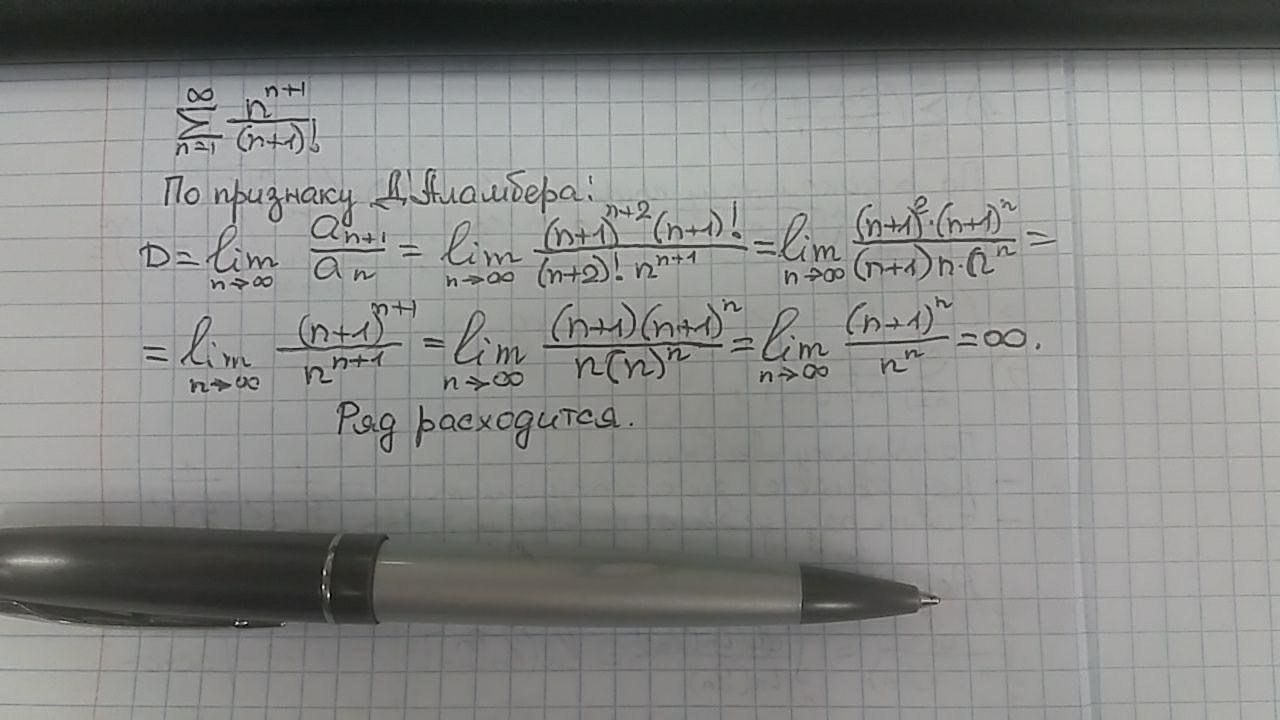 ∞
∑ n^{n+1}/(n+1)!
n=1
По признаку Д'Аламбера:
D = lim_{n→∞} a_{n+1}/a_n = lim_{n→∞} (n+1)^{n+2}(n+1)!/((n+2)! n^{n+1}) = lim_{n→∞} (n+1)^2·(n+1)^n/((n+1) n·n^n) =
= lim_{n→∞} (n+1)^{n+1}/n^{n+1} = lim_{n→∞} (n+1)(n+1)^n/(n(n)^n) = lim_{n→∞} (n+1)^n/n^n = ∞.
Ряд расходится.